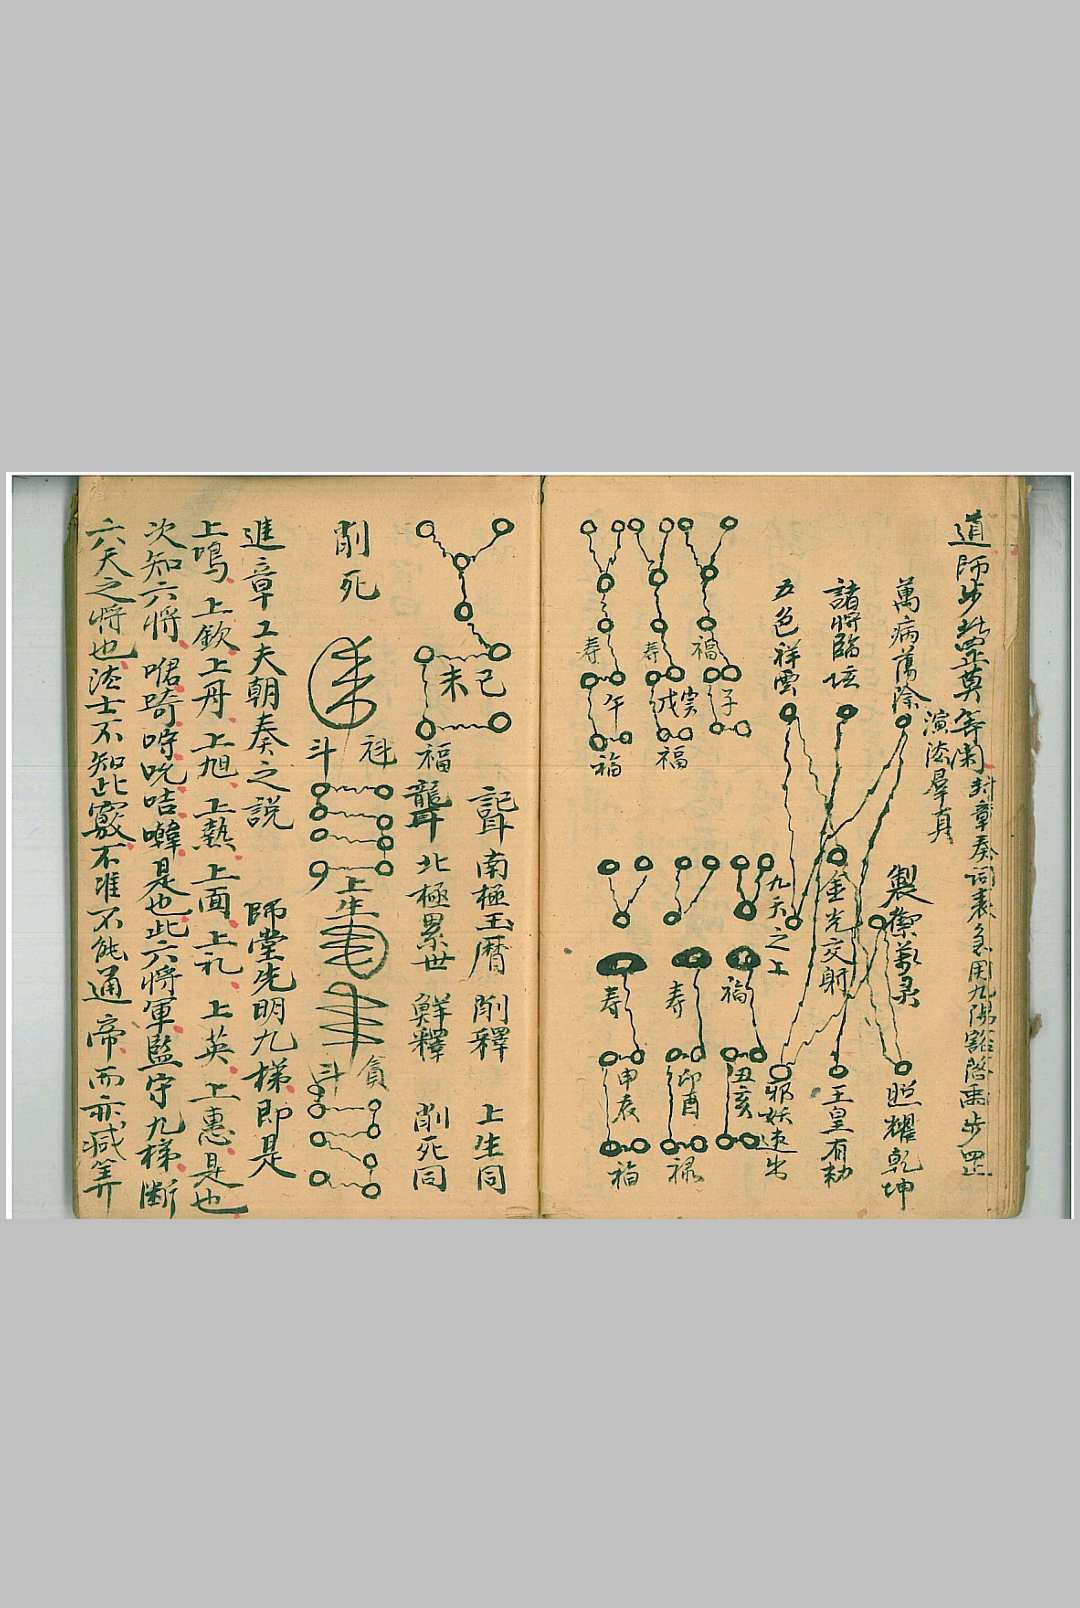 道師步此罡莫等闲封章奏词表急用九陽豁啓禹步罡
演法羣真
萬病蕩除
照耀乾坤
諸將臨坛
金光交射
玉皇有勅
五色祥雲
九天之上
邪妖速出
福
子
寿
戌
福
寿
午
福
福
丑亥
寿
卯酉
禄
寿
申辰
福
南極玉曆 削釋 上生同
北極累世 解釋 削死同
己
未
福
削死
魁
斗
上生
貪
斗
進章工夫朝奏之説 師堂先明九梯即是
上鳴上欽上丹上旭上熱上面上礼上英上惠是也
是也此六將軍監守九梯斷
次知六將
六天之將也法士不知此竅不准不能通帝而亦减筭